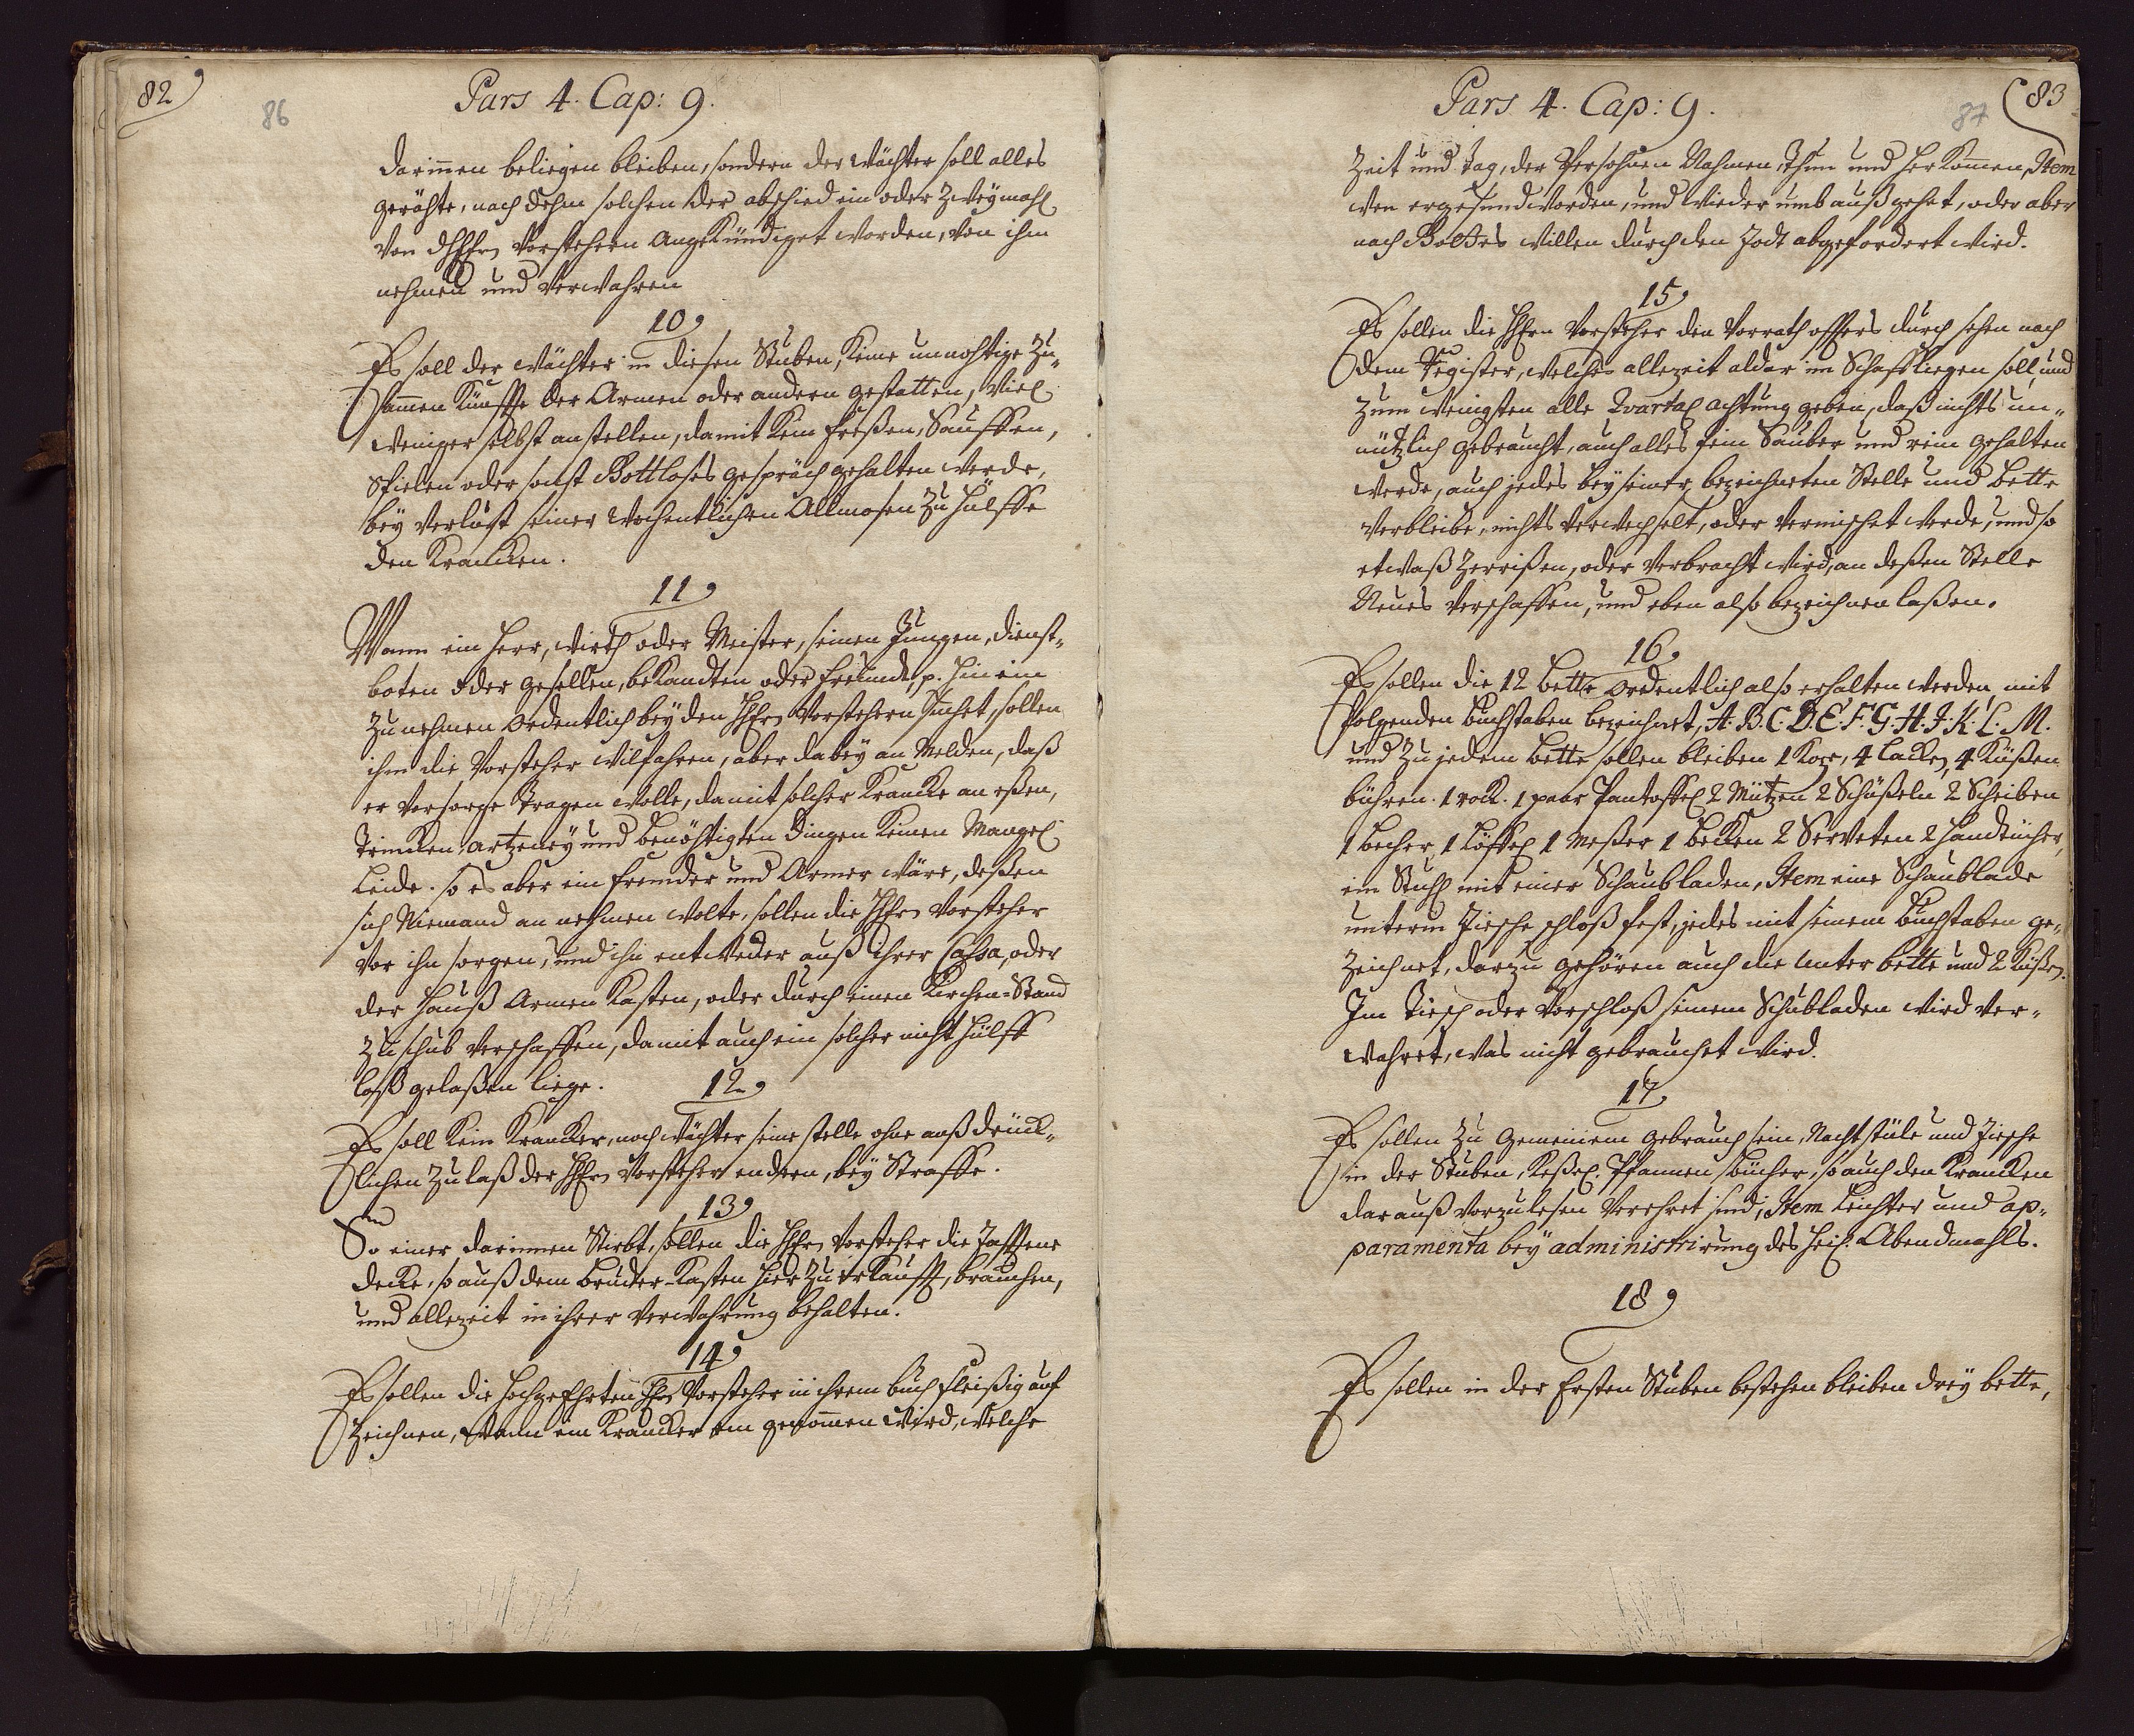 82
86
Pars 4. Cap: 9.
darinnen beliegen bleiben, sondern der Wächter soll alles
gerähte, nach dehm solchen der abschied ein oder zweymahl
von Vorstehern angekündiget worden, von ihm
nehmen und verwahren
10
Es soll der Wächter in diesen Stuben, keine unnohtige zu„
sammen Künffte der Armen oder andern gestatten, viel
weniger selbst anstellen, damit kein freßen, Sauffen,
Spielen oder sonst Gottloses gespräch gehalten werde,
bey verlust seiner wochentlichen Allmosen zu hülffe
den Krancken.
11
Wann ein Herr, Wirth oder Meister, seinen Jungen, dienst„
boten oder gesellen, bekandten oder freunde, p. hinein
zu nehmen ordentlich bey den HHrn Vorstehern suchet, sollen
ihm die Vorsteher wilfahren, aber dabey an melden, daß
er vorsorge tragen wolle, damit solcher Krancke an eßen,
Trincken, artzeney und benöhtigten dingen keinen Mangel
leide. so es aber ein fremder und Armer wäre, deßen
sich Niemand an nehmen wolte, sollen die HHrn Vorsteher
vor ihn sorgen, und ihn entweder auß ihrer Cassa, oder
der Hauß Armen Kasten, oder durch einen Kirchen-Stand
zuschub verschaffen, damit auch ein solcher nicht hülff
loß gelaßen liege.
12
Es soll kein Krancker, noch Wächter seine stelle ohne außdrück„
lichen zulaß der HHrn Vorsteher endern, bey Straffe.
13
So einer darinnen Stirbt, sollen die HHrn Vorsteher die Taffene
decke, so auß dem brüder-Kasten hierzu erkaufft, brauchen,
und allezeit in ihrer verwahrung behalten.
14
Es sollen die hochgeEhrten HHrn Vorsteher in ihrem buch fleißig auf
zeichnen, Wann ein Krancker ein genommen wird, welche
83
87
Pars 4. Cap: 9.
Zeit und tag, der Persohnen Nahmen, Thun und herkommen, Item
wen er gesund worden, und wieder umb außgehet, oder aber
nach Gottes willen durch den Todt abgefordert wird.
15
Es sollen die HHrn Vorsteher den Vorrath offters durch sehen nach
dem Register, welches allezeit aldar im Schaff liegen soll, und
zum wenigsten alle Quartal achtung geben, daß nichts un„
nützlich gebraucht, auch alles fein Sauber und rein gehalten
werde, auch jedes bey seiner bezeichneten Stelle und bette
verbleibe, nichts verwechselt, oder vermischet werde, und so
etwaß zerrißen, oder verbracht wird, an deßen Stelle
Neues verschaffen, und eben also bezeichnen laßen.
16
Es sollen die 12 bette ordentlich also erhalten werden, mit
folgenden buchstaben bezeichnet, A. B. C. D. E. F. G. H. J. K. L. M.
und zu jedem bette sollen bleiben 1 4 Lacken, 4 Küßen
bühren. 1 rock. 1 paar Pantoffel 2 Mützen 2 Schüßeln 2 Scheiben
1 becher, 1 Löffel 1 Meßer 1 becken 2 Serveten 2 handtücher,
ein Stuhl mit einer Schaubladen, Item eine Schaublade
unterm Tische schloß fest, jedes mit seinem buchstaben ge„
zeichnet, darzu gehören auch die unter bette und 2 Küßen.
Im Tisch oder vorschloß seinem Schubladen wird ver„
wahret, was nicht gebrauchet wird.
17
Es sollen zu gemeinem gebrauch sein, Nachtstüle und Tische
in der Stuben, Keßel. Pfannen bücher, so auch den Krancken
darauß vorzulesen verehret sind, Item leuchter und ap„
paramenta bey administrirung des Heil. Abendmahls.
18
Es sollen in der Ersten Stuben bestehen bleiben drey bette,